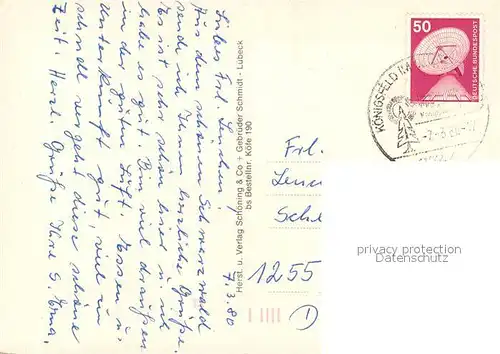 7.3.80
Liebes Frl. Lenchen!
Aus dem schönen Schwarzwald
sende ich Ihnen herzliche Grüße.
Es ist sehr schön hier u. ich
habe es gut. Bin viel draußen
in der guten Luft. Essen u.
Unterkunft gut, viel zu
schnell vergeht diese schöne
Zeit. Herzl. Grüße Ihre S. Erna.
Herst. u. Verlag Schöning & Co + Gebrüder Schmidt · Lübeck
bs Bestellnr. Köfe 190
50
DEUTSCHE BUNDESPOST
KÖNIGSFELD
Frl.
1255
privacy protection
Datenschutz